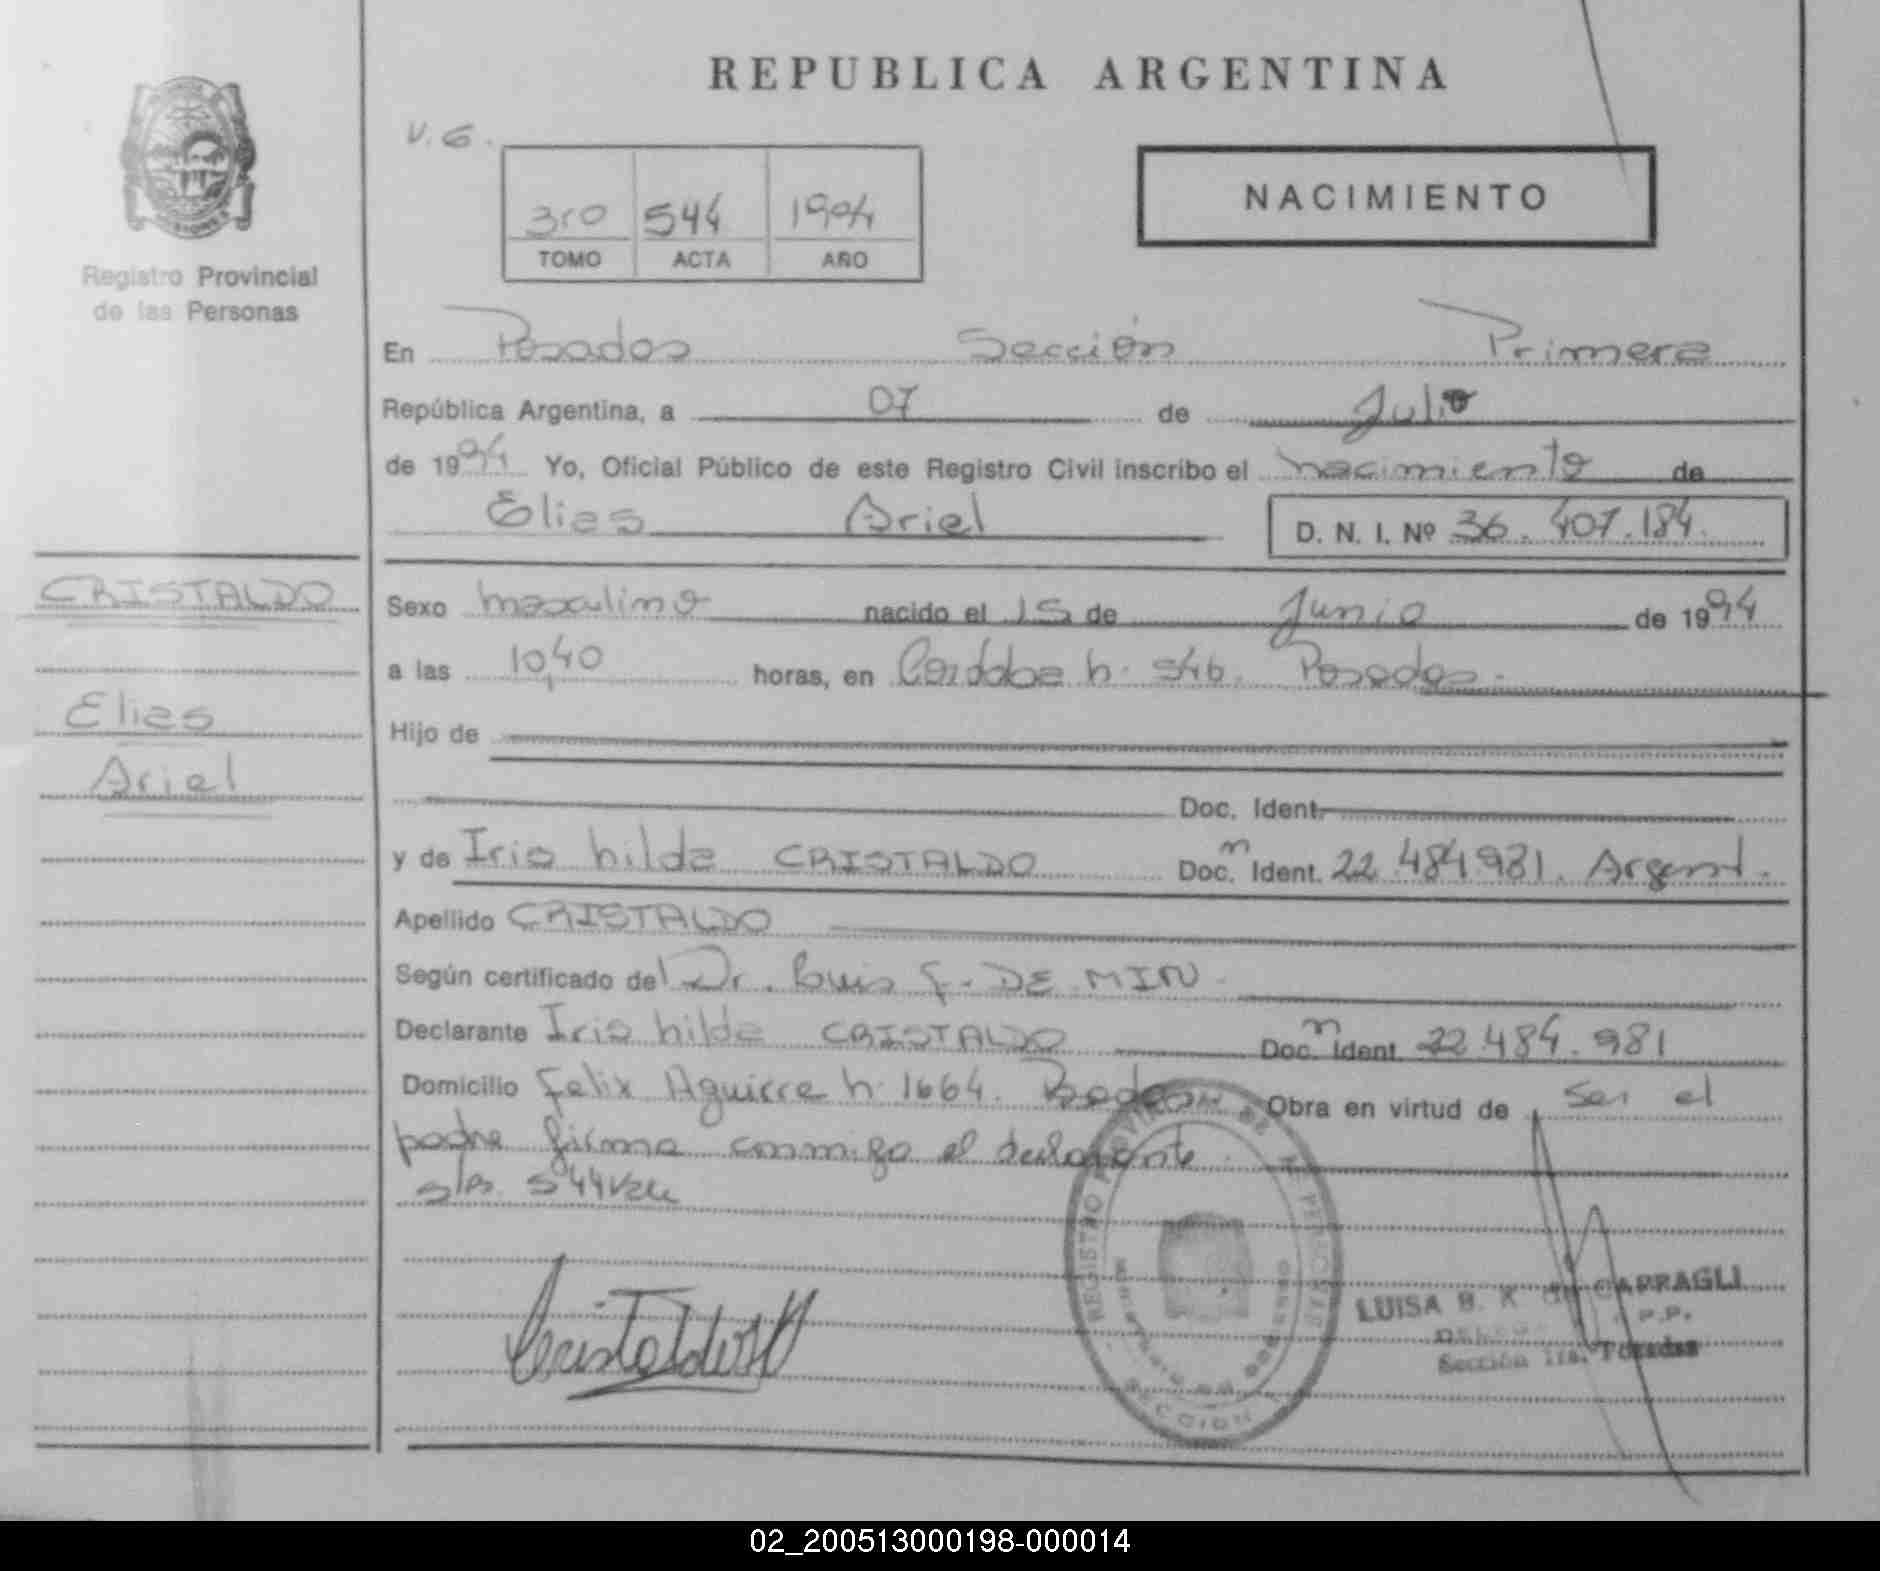 REPUBLICA ARGENTINA
V. G.
3ro 544 1994
TOMO ACTA AÑO
NACIMIENTO
Registro Provincial
de las Personas
En Posadas Sección Primera
República Argentina, a 07 de Julio
de 1994 Yo, Oficial Público de este Registro Civil inscribo el nacimiento de
Elias Ariel D. N. I. Nº 36.407.184.
CRISTALDO
Elias
Ariel
Sexo masculino nacido el 15 de Junio de 1994
a las 10,40 horas, en Cordoba n. 546. Posadas.
Hijo de
Doc. Ident.
y de Iris hilda CRISTALDO Doc. n Ident. 22.484.981. Argent.
Apellido CRISTALDO
Según certificado del Dr. Luis F. DE MIN.
Declarante Iris hilda CRISTALDO Doc. n Ident. 22.484.981
Domicilio Felix Aguirre n. 1664. Posadas Obra en virtud de ser el
padre firma conmigo el declarante.
544 Vale
Cristaldo
REGISTRO PROVINCIAL DE PERSONAS
MINISTERIO DE GOBIERNO
SECCION
LUISA B. K de CARRAGLI
P.P.
Sección 1ra. Posadas
02_200513000198-000014